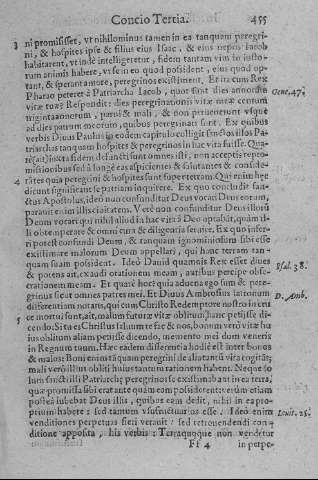 Concio Tertia. 455
3 ni promisisset, vt nihilominus tamen in ea tanquam peregri-
ni, & hospites ipse & filius eius Isac, & eius nepos Iacob
habitarent, vt inde intelligeretur, fidem tantam vim in iusto-
rum animis habere, vt sem eo quod possident, eius quod op-
tant, & sperant amore, peregrini existiment. Et ita cum Rex
Pharao peteret à Patriarcha Iacob, quot sint dies annorũ Gene. 47.
vitæ tuæ? Respondit: dies peregrinationis vitæ meæ centum
triginta annorum, parui & mali, & non peruenerunt vsque
ad dies patrum meorum, quibus peregrinati sunt. Ex quibus
verbis Diuus Paulus in eodem capitulo colligit sanctos illos Pa-
triarchas tanquam hospites & peregrinos in hac vita fuisse.
(ait) iuxta fidem defuncti sunt omnes isti, non acceptis repro-
missionibus sed à longè eas aspicientes & salutantes & confite-
4 tes quia peregrini & hospites sunt super terram. Qui enim hæc
dicunt significant se patriam inquirere. Ex quo concludit san-
ctus Apostolus, ideo non confunditur Deus vocari Deus eorum,
parauit enim illis ciuitatem. Verè non confunditur Deus illorũ
Deum vocari qui nihil aliud in hac vita à Deo optabãt, quàm il-
li obtemperare & omni cura & diligentia seruire. Ex quo infer-
ri potest confundi Deum, & tanquam ignominiosum sibi esse
existimare malorum Deum appellari, qui hanc terram tan-
quam suam possident. Ideo Dauid quamuis Rex esset diues
& potens ait, exaudi orationem meam, auribus percipe obse- Psal. 38.
crationem meam. Et quare hoc? quia aduena ego sum & pere-
grinus sicut omnes patres mei. Et Diuus Ambrosius latronum D. Amb.
differentiam notans, qui cum Christo Redemptore nostro in cru
5 ce mortui sunt, ait, malum futuræ vitæ oblitum, hanc petisse di-
cendo: Si tu es Christus saluum te fac & nos, bonum verò vitæ hu
ius oblitum aliam petisse dicendo, memento mei dum veneris
in Regnum tuum. Hæc eadem differentia hodie est inter bonos
& malos: Boni enim tã quam peregrini de alia tantũ vita cogitãt;
mali verò illius obliti huius tantum rationem habent. Neque so
lum sancti illi Patriarchæ peregrinos se existimabant in ea terra,
quæ promissa sibi erat ante quàm eam possiderent: verùm etiam
postea iubebat Deus illis, quibus eam dedit, nihil in ea pro-
prium habere: sed tantum vsufructuarios esse. Ideò enim Leuit. 25.
venditiones perpetuas fieri veruit: sed retrouendendi con-
ditione apposita, his verbis: Terra quoque non vendetur
Ff 4 in perpe-